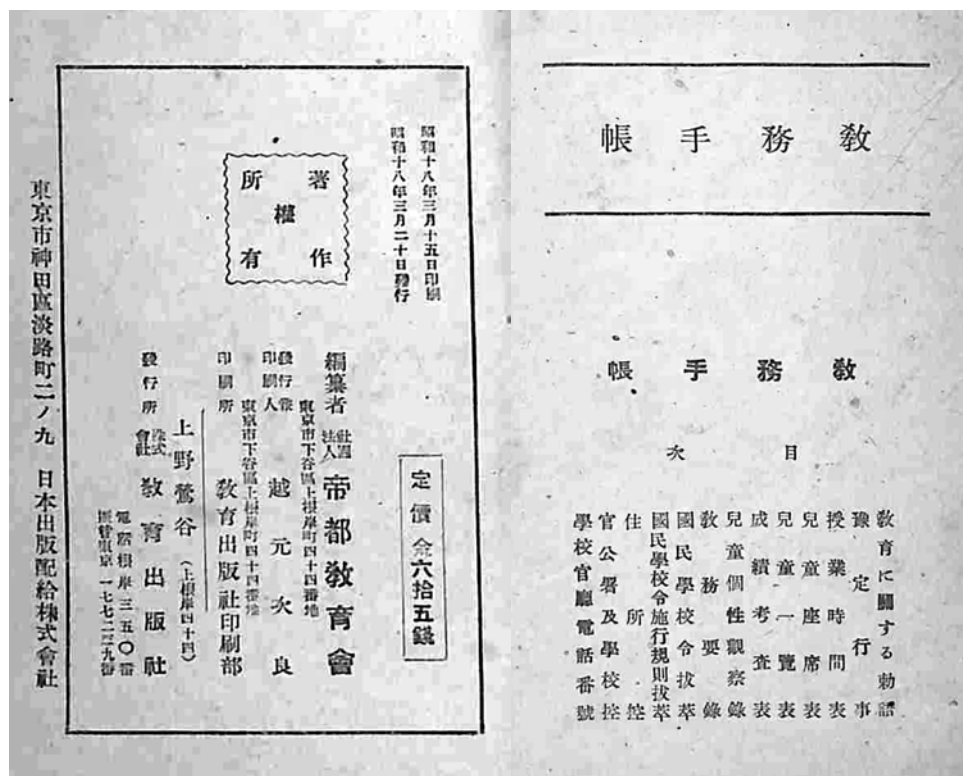 敎務手帳
敎務手帳
目次
敎育に關する勅語
豫定行事
授業時間表
兒童座席表
兒童一覽表
成績考査表
兒童個性觀察錄
敎務要錄
國民學校令拔萃
國民學校令施行規則拔萃
住所控
官公署及學校控
學校官廳電話番號
昭和十八年三月十五日印刷
昭和十八年三月二十日發行
著作權所有
定價金六拾五錢
編纂者 社團法人 帝都敎育會
東京市下谷區上根岸町四十四番地
發行兼印刷人 越元次良
東京市下谷區上根岸町四十四番地
印刷所 敎育出版社印刷部
上野鶯谷(上根岸四十四)
發行所 株式會社 敎育出版社
電話根岸三五〇番
振替東京一七七二二九番
東京市神田區淡路町二ノ九 日本出版配給株式會社